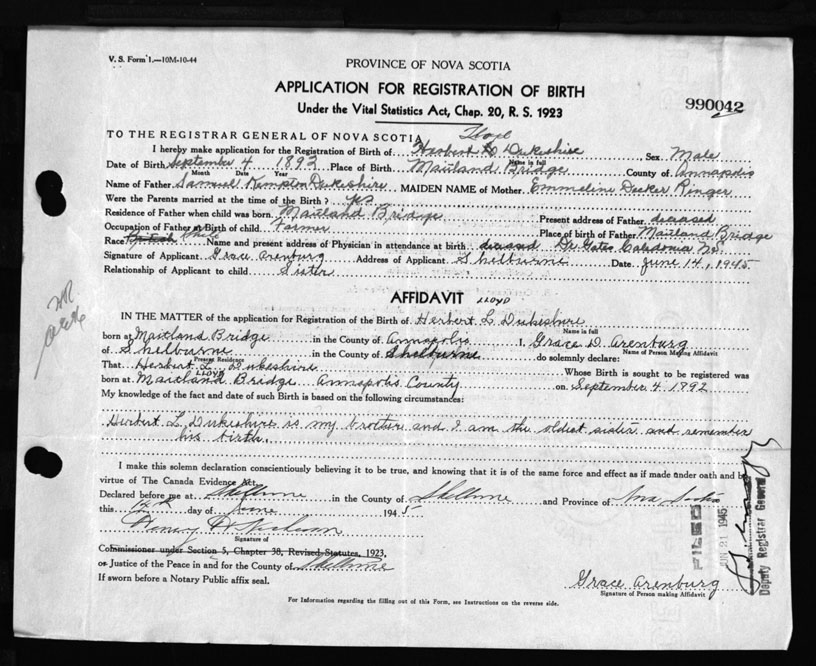 V. S. Form 1.—10M-10-44
PROVINCE OF NOVA SCOTIA
APPLICATION FOR REGISTRATION OF BIRTH
Under the Vital Statistics Act, Chap. 20, R. S. 1923
990042
TO THE REGISTRAR GENERAL OF NOVA SCOTIA
Lloyd
I hereby make application for the Registration of Birth of Herbert L Dukeshire Sex Male
Name in full
Date of Birth September 4 1893 Place of Birth Maitland Bridge County of Annapolis
Month Date Year
Name of Father Samuel Kempton Dukeshire MAIDEN NAME of Mother Emmeline Decker Ringer
Were the Parents married at the time of the Birth? yes
Residence of Father when child was born Maitland Bridge Present address of Father deceased
Occupation of Father at Birth of child Farmer Place of birth of Father Maitland Bridge
Race British White Name and present address of Physician in attendance at birth deceased Dr. Gates Caledonia N.S.
Signature of Applicant Grace Arenburg Address of Applicant Shelburne Date June 14, 1945
Relationship of Applicant to child Sister
AFFIDAVIT
LLOYD
IN THE MATTER of the application for Registration of the Birth of Herbert L Dukeshire
Name in full
born at Maitland Bridge in the County of Annapolis I, Grace D. Arenburg
Name of Person Making Affidavit
of Shelburne in the County of Shelburne do solemnly declare:
Present Residence
That Herbert L. Dukeshire Whose Birth is sought to be registered was
LLOYD
born at Maitland Bridge Annapolis County on September 4 1892
My knowledge of the fact and date of such Birth is based on the following circumstances:
Herbert L Dukeshire is my brother and I am the oldest sister and remember
his birth.
I make this solemn declaration conscientiously believing it to be true, and knowing that it is of the same force and effect as if made under oath and by
virtue of The Canada Evidence Act.
Declared before me at Shelburne in the County of Shelburne and Province of Nova Scotia
this day of June 1945
Signature of
Commissioner under Section 5, Chapter 38, Revised Statutes, 1923,
or Justice of the Peace in and for the County of Shelburne
If sworn before a Notary Public affix seal.
Grace Arenburg
Signature of Person making Affidavit
For Information regarding the filling out of this Form, see Instructions on the reverse side.
FILED
JUN 21 1945
Deputy Registrar General